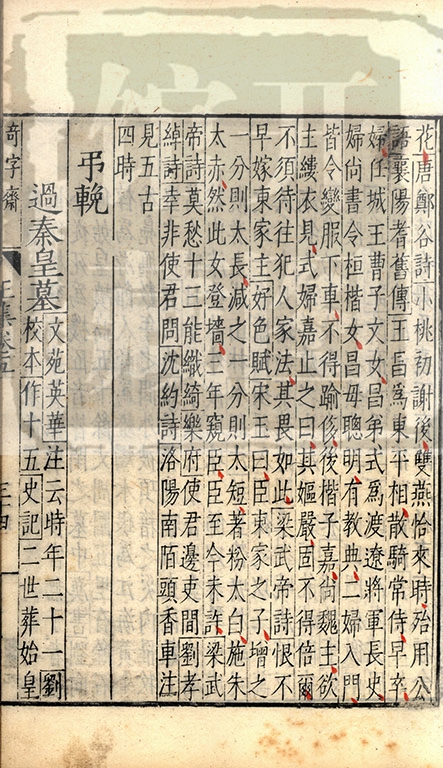 花唐鄭谷詩小桃初謝後雙燕恰來時殆用公
語襄陽耆舊傳王昌為東平相散騎常侍早卒
婦任城王曹子文女昌弟式爲渡遼將軍長史
婦尚書令桓楷女昌母聰明有教典二婦入門
皆令變服下車不得踰侈後楷子嘉尚魏主欲
主縷衣見式婦嘉止之曰其嫗嚴固不得倍爾
不須持往犯人家法其畏如此梁武帝詩恨不
早嫁東家主好色賦宋玉曰臣東家之子增之
一分則太長減之一分則太短著粉太白施朱
太赤然此女登墻三年窺臣臣至今未許梁武
帝詩莫愁十三能織綺樂府使君邊吏間劉孝
綽詩幸非使君問沈約詩洛陽南陌頭香車注
見五古
四時
弔輓
過秦皇墓文苑英華注云時年二十一劉
校本作十五史記二世葬始皇
奇字齋